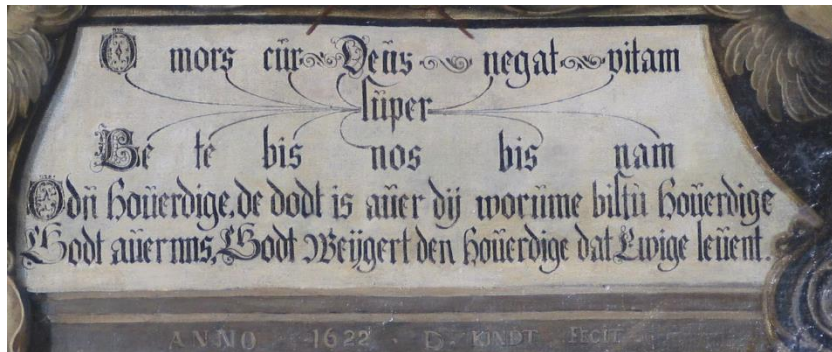 O mors cûr Deûs negat vitam
sûper
Be te bis nos bis nam
O dû hoûerdige, de dodt is aûer dÿ worûme bistû hoûerdige
Godt aûer nns, Godt Weÿgert den hoûerdige dat Ewige leûent.
ANNO 1622 D KINDT FECIT